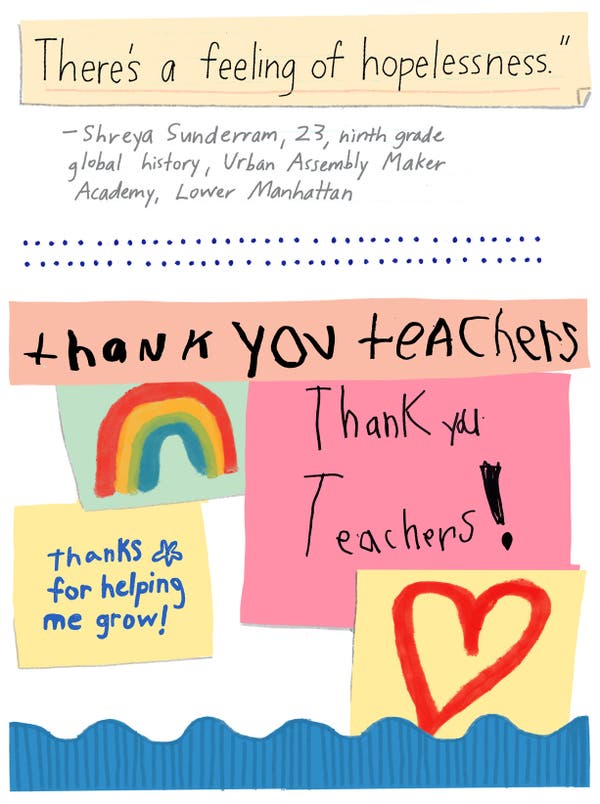 There's a feeling of hopelessness."
—Shreya Sunderram, 23, ninth grade
global history, Urban Assembly Maker
Academy, Lower Manhattan
thank YOU teAchers
Thank you
Teachers!
thanks
for helping
me grow!